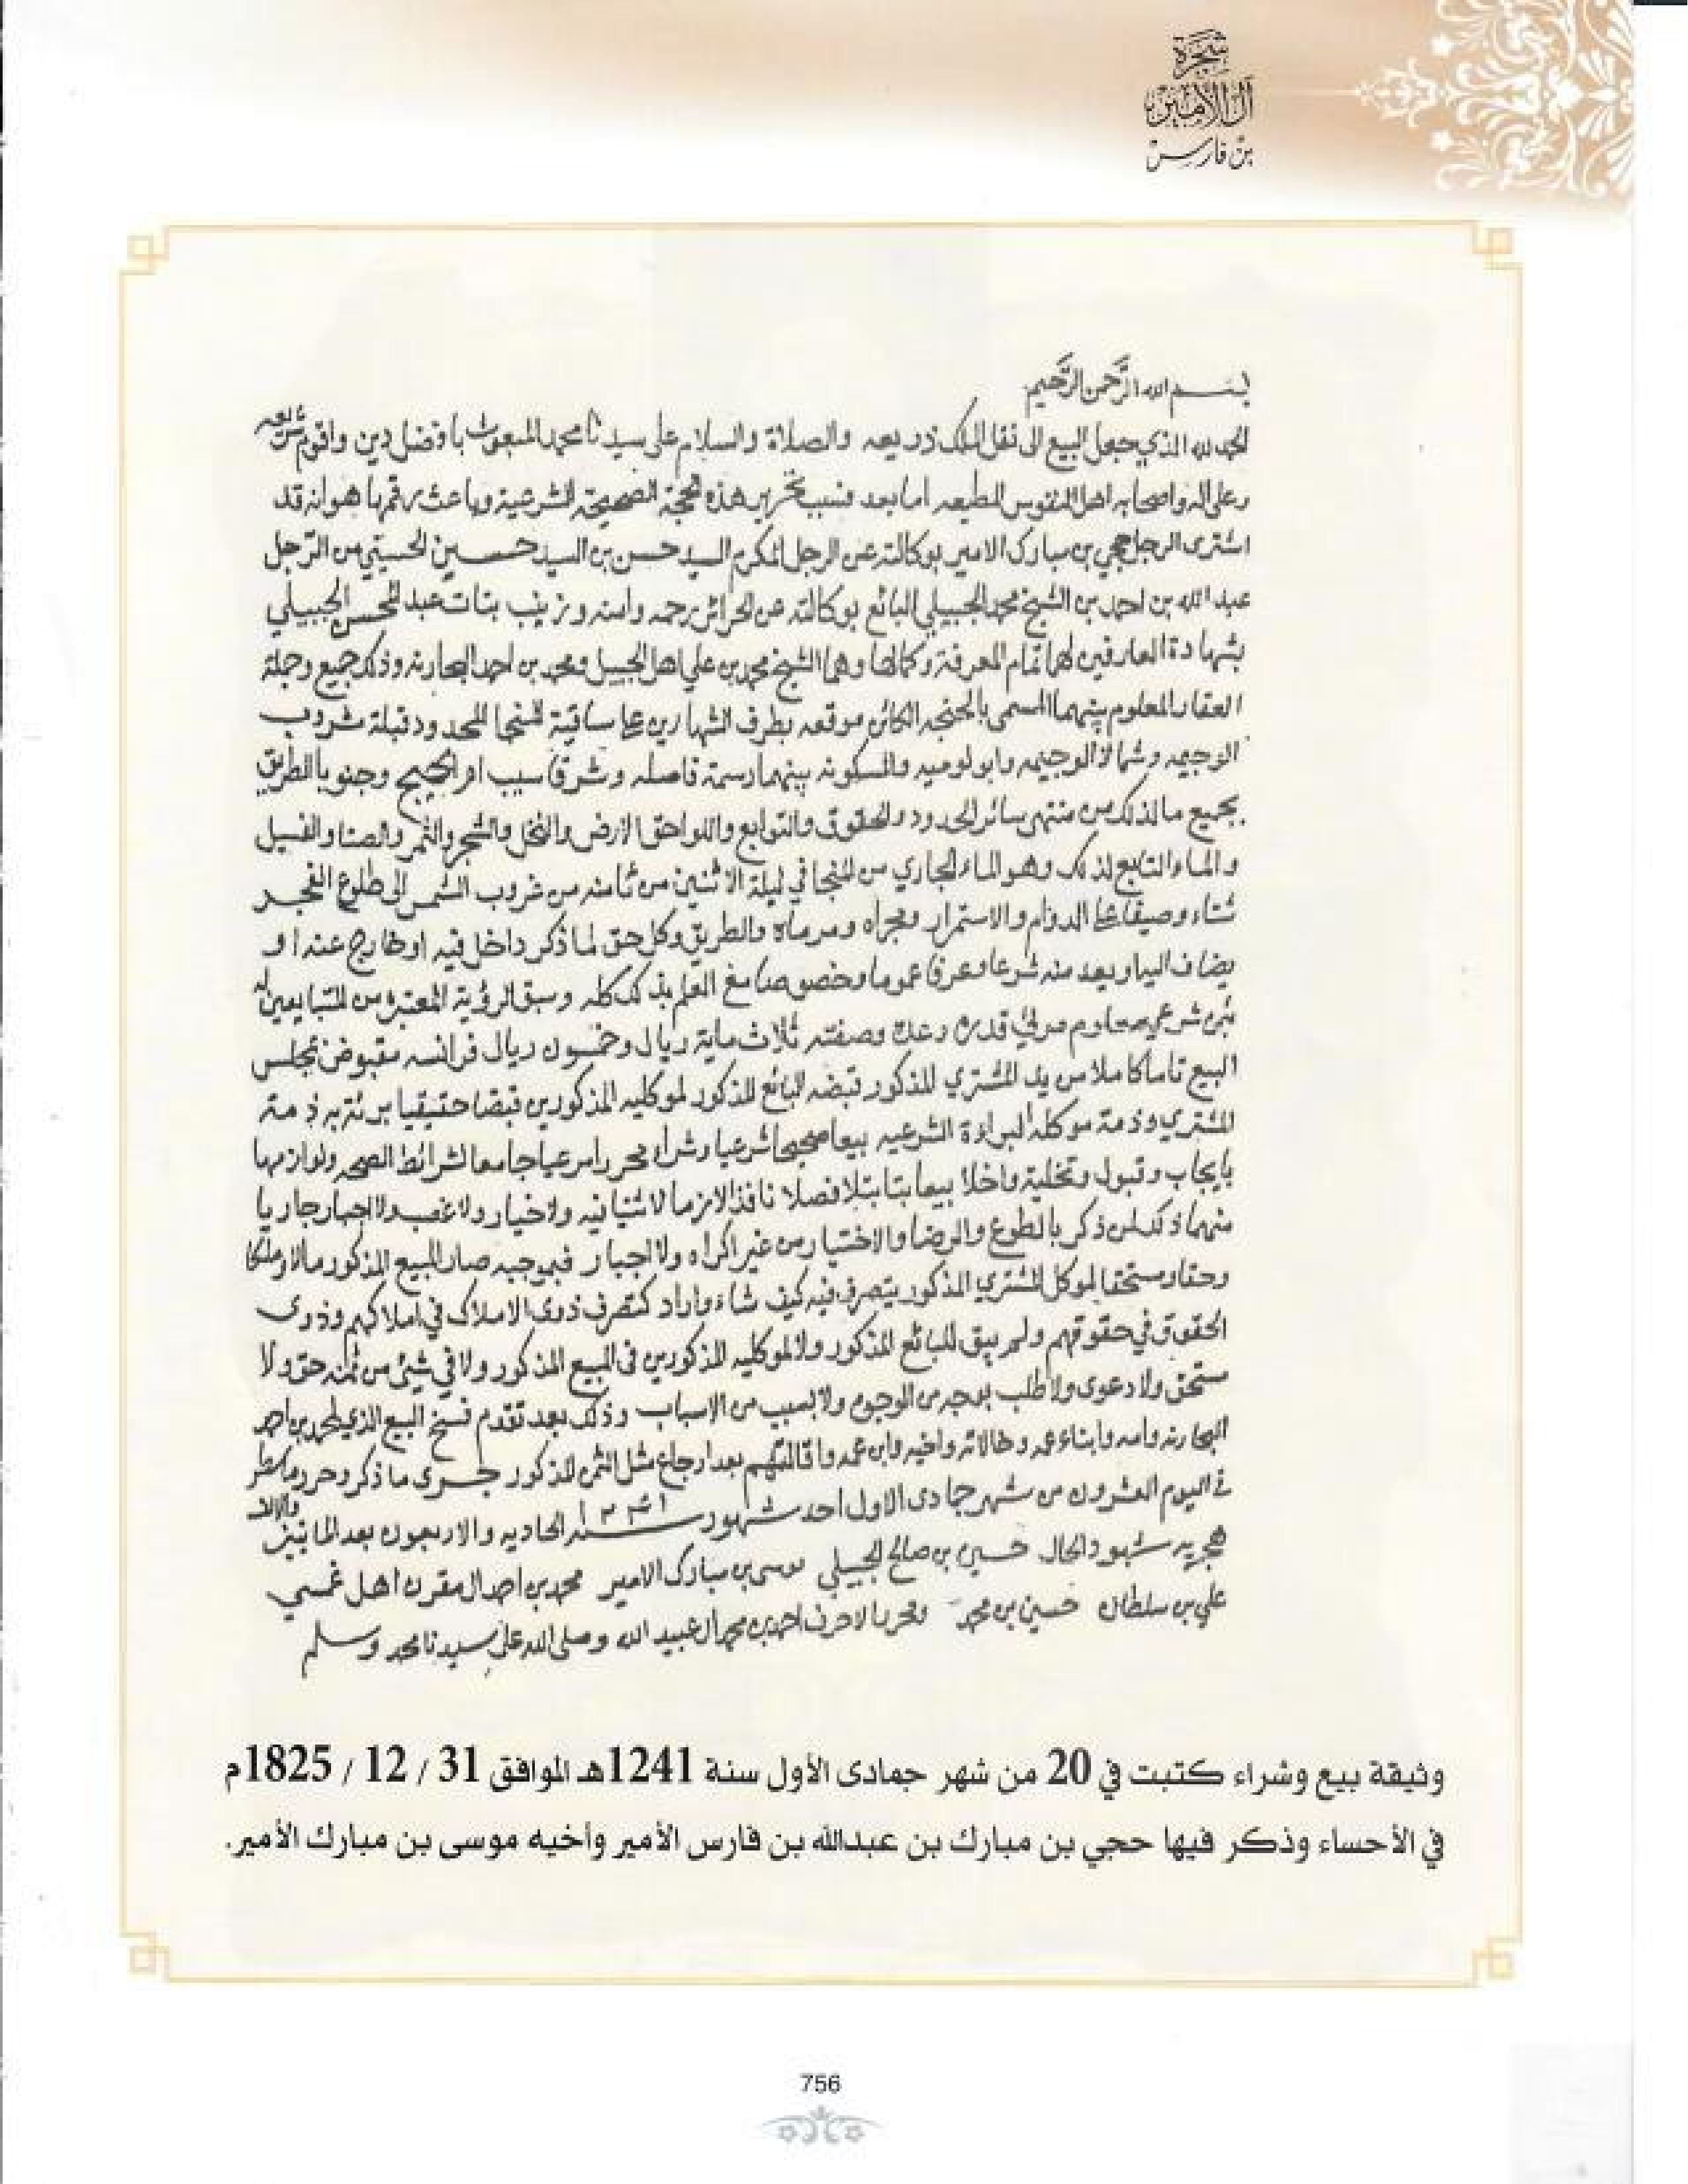 شجرة
آل الأمير
بن فارس
بسم الله الرَّحمن الرَّحيم
الحمد لله الذي جعل البيع الى نقل الملك ذريعه والصلاة والسلام على سيدنا محمد المبعوث بافضل دين واقوم شريعه
وعلى اله واصحابه اهل النفوس المطيعه اما بعد فسبب تحرير هذه الحجة الصحيحة الشرعية وباعث رقمها هو انه قد
اشترى الرجل حجي بن مبارك الامير بوكالته عن الرجل المكرم السيد حسن بن السيد حسين الحسيني من الرجل
عبد الله بن احمد بن الشيخ محمد الجبيلي البائع بوكالته عن الحرائر رحمه وامنه وزينب بنات عبد المحسن الجبيلي
بشهادة العارفين لها تمام المعرفة وكمالها وهما الشيخ محمد بن علي اهل الجبيل ومحمد بن احمد البحارنه وذلك جميع وجملة
العقار المعلوم بينهما المسمى بالحنجه الكائن موقعه بطرف الشهارين على ساقية المنجا المحدود قبلة شروب
الوجيمه وشمالا الوجيمه وابو لوميه والمسكونه بينهما رسمة فاصله وشرقا سيب ام الجبيج وجنوبا الطريق
بجميع ما لذلك من منتهى سائر الحدود والحقوق والتوابع واللواحق الارض والنخل والشجر والثمر والصنا والفسيل
والماء التابع لذلك وهو الماء الجاري من المنجا في ليلة الاثنين من ثامنه من غروب الشمس الى طلوع الفجر
شتاء وصيفا على الدوام والاستمرار ومجراه ومرماه والطريق وكل حق لما ذكر داخل فيه او خارج عنه او
يضاف اليه او يعد منه شرعا وعرفا عموما وخصوصا مع العلم بذلك كله وسبق الرؤية المعتبرة من المتبايعين له
بثمن شرعي معلوم مرئي قدره وعده وصفته ثلاث ماية ريال وخمسون ريال فرانسه مقبوض بمجلس
البيع تاما كاملا من يد المشتري المذكور قبضه البائع المذكور لموكليه المذكورين قبضا حقيقيا برئة به ذمة
المشتري وذمة موكله البراءة الشرعيه بيعا صحيحا شرعيا وشراء محررا مرعيا جامعا لشرائط الصحه ولوازمها
بايجاب وقبول وتخلية واخلا بيعا بتا بتلا فصلا نافذا لازما لا ثنيا فيه ولا خيار ولا غصب ولا اجبار جاريا
منهما ذلك لمن ذكر بالطوع والرضا والاختيار من غير اكراه ولا اجبار فبموجبه صار المبيع المذكور مالا وملكا
وحقا ومستحقا لموكل المشتري المذكور يتصرف فيه كيف شاء واراد كتصرف ذوى الاملاك في املاكهم وذوى
الحقوق في حقوقهم ولم يبق للبائع المذكور ولا لموكليه المذكورين في المبيع المذكور ولا في شيئ من ثمنه حق ولا
مستحق ولا دعوى ولا طلب بوجه من الوجوه ولا بسبب من الاسباب وذلك بعد تقدم فسخ البيع الذي لمحمد بن احمد
البحارنه وامه وابناء عمه وخالاته واخيه وابن عمه واقالتهم بعد ارجاع مثل الثمن المذكور جرى ما ذكر وحرر وما سطر
في اليوم العشرون من شهر جمادى الاول احد شهور سنة ١٢٤١ الحاديه والاربعون بعد المائتين والالف
هجريه شهود الحال حسين بن صالح الجبيلي موسى بن مبارك الامير محمد بن احمد ال مقرن اهل غمسي
علي بن سلطان حسين بن محمد ومحرر الاحرف احمد بن محمد ال عبيد الله وصلى الله على سيدنا محمد وسلم
وثيقة بيع وشراء كتبت في 20 من شهر جمادى الأول سنة 1241هـ الموافق 31 / 12 / 1825م
في الأحساء وذكر فيها حجي بن مبارك بن عبدالله بن فارس الأمير وأخيه موسى بن مبارك الأمير.
756